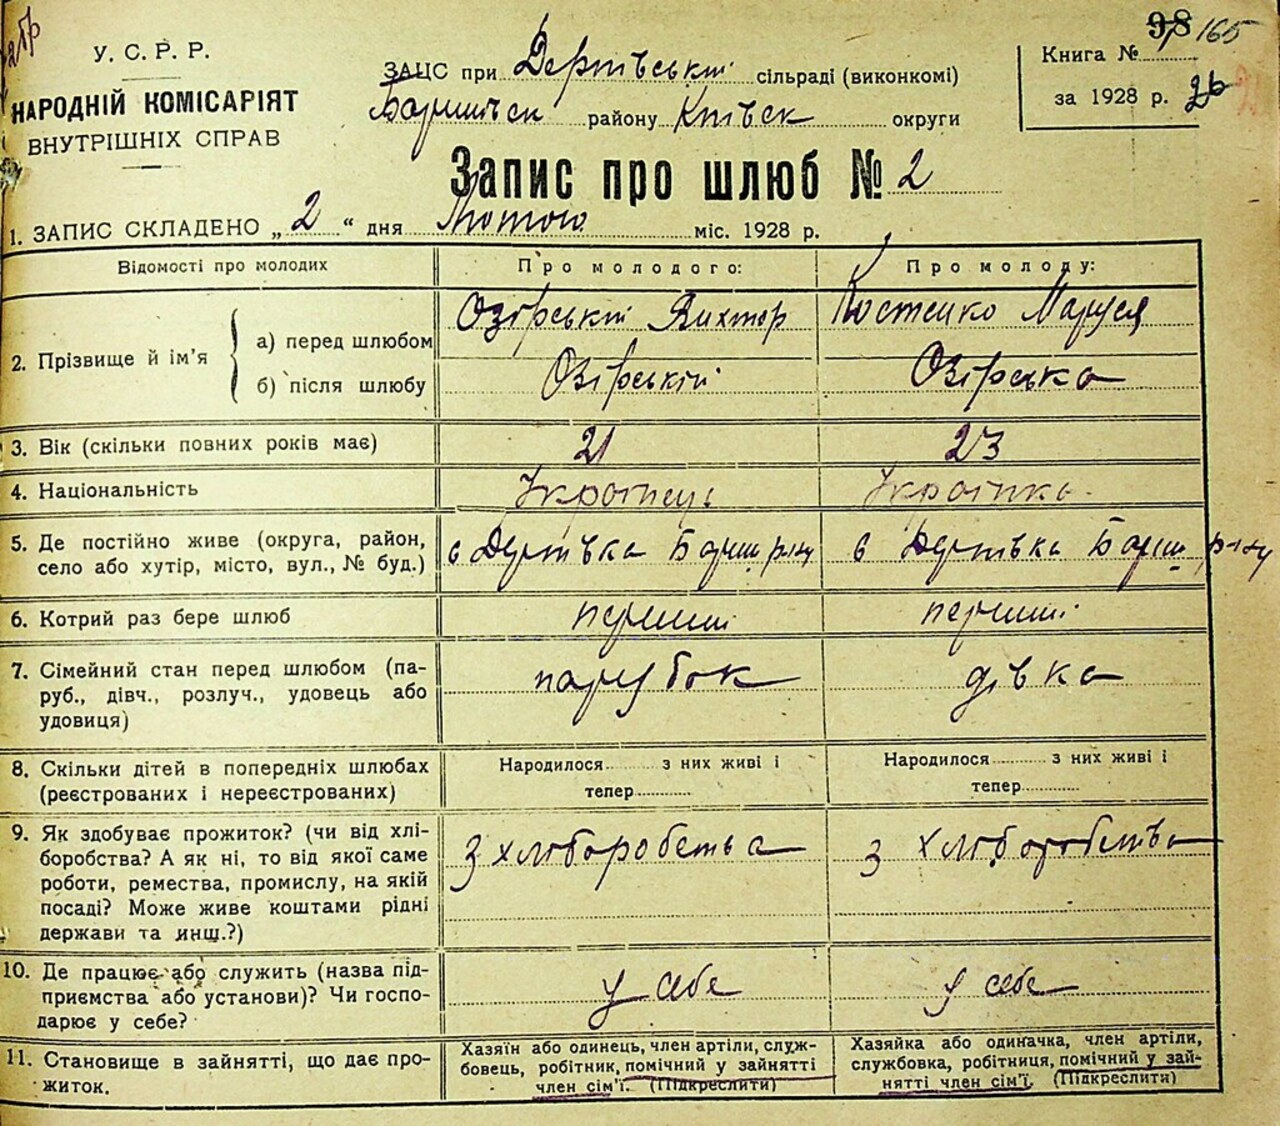 98 165
У. С. Р. Р.
НАРОДНІЙ КОМІСАРІЯТ
ВНУТРІШНІХ СПРАВ
ЗАЦС при Дернівські сільраді (виконкомі)
Баришівск району Київск округи
Книга №
за 1928 р. 26
Запис про шлюб № 2
1. ЗАПИС СКЛАДЕНО „ 2 “ дня Лютого міс. 1928 р.
Відомості про молодих
Про молодого:
Про молоду:
2. Прізвище й ім'я
а) перед шлюбом
Озірській Вихтор
Костенко Маруся
б) після шлюбу
Озірській
Озірська
3. Вік (скільки повних років має)
21
23
4. Національність
Українець
Українка.
5. Де постійно живе (округа, район,
село або хутір, місто, вул., № буд.)
с Дернівка Бариш р-ну
с Дернівка Бариш р-ну
6. Котрий раз бере шлюб
перший
перший
7. Сімейний стан перед шлюбом (па-
руб., дівч., розлуч., удовець або
удовиця)
парубок
дівка
8. Скільки дітей в попередніх шлюбах
(реєстрованих і нереєстрованих)
Народилося з них живі і
тепер
Народилося з них живі і
тепер
9. Як здобуває прожиток? (чи від хлі-
боробства? А як ні, то від якої саме
роботи, ремества, промислу, на якій
посаді? Може живе коштами рідні
держави та инш.?)
З хліборобства
З хліборобства
10. Де працює або служить (назва під-
приємства або установи)? Чи госпо-
дарює у себе?
у себе
у себе
11. Становище в зайнятті, що дає про-
житок.
Хазяїн або одинець, член артілі, служ-
бовець, робітник, помічний у зайнятті
член сім'ї. (Підкреслити)
Хазяйка або одиначка, член артіли,
службовка, робітниця, помічний у зай-
нятті член сім'ї. (Підкреслити)